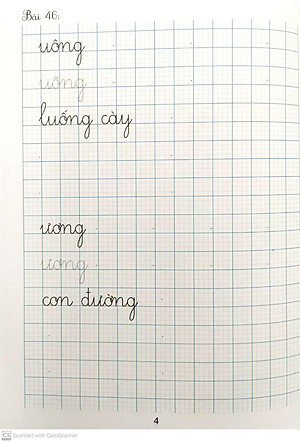 Bài 46:
uông
uông
luống cày
ương
ương
con đường
4
CS Scanned with CamScanner